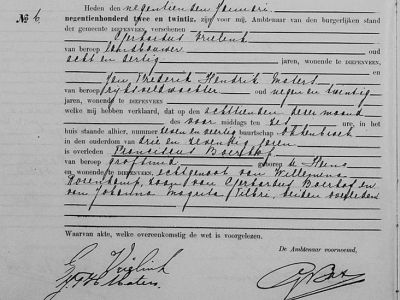 Heden den negentienden Januari
№ 6 negentienhonderd twee en twintig, zijn voor mij, Ambtenaar van den burgerlijken stand
der gemeente DIEPENVEEN, verschenen
Gerhardus Vrielink
van beroep landbouwer oud
acht en dertig jaren, wonende te DIEPENVEEN,
en
Jan Frederik Hendrik Maters
van beroep rijksveldwachter oud negen en twintig
jaren, wonende te DIEPENVEEN
welke mij hebben verklaard, dat op den achttienden dezer maand
des voor middags ten zes ure, in het
huis staande alhier, nummer zeven en veertig buurtschap
in den ouderdom van drie en zeventig jaren
is overleden Franciscus Boerhof
van beroep grofsmid geboren te
en wonende te DIEPENVEEN, echtgenoot van Willemina
zoon van Gerhardus Boerhof en
van Johanna beiden overleden
Waarvan akte, welke overeenkomstig de wet is voorgelezen.
De Ambtenaar voornoemd,
G Vrielink
J. F. H. Maters